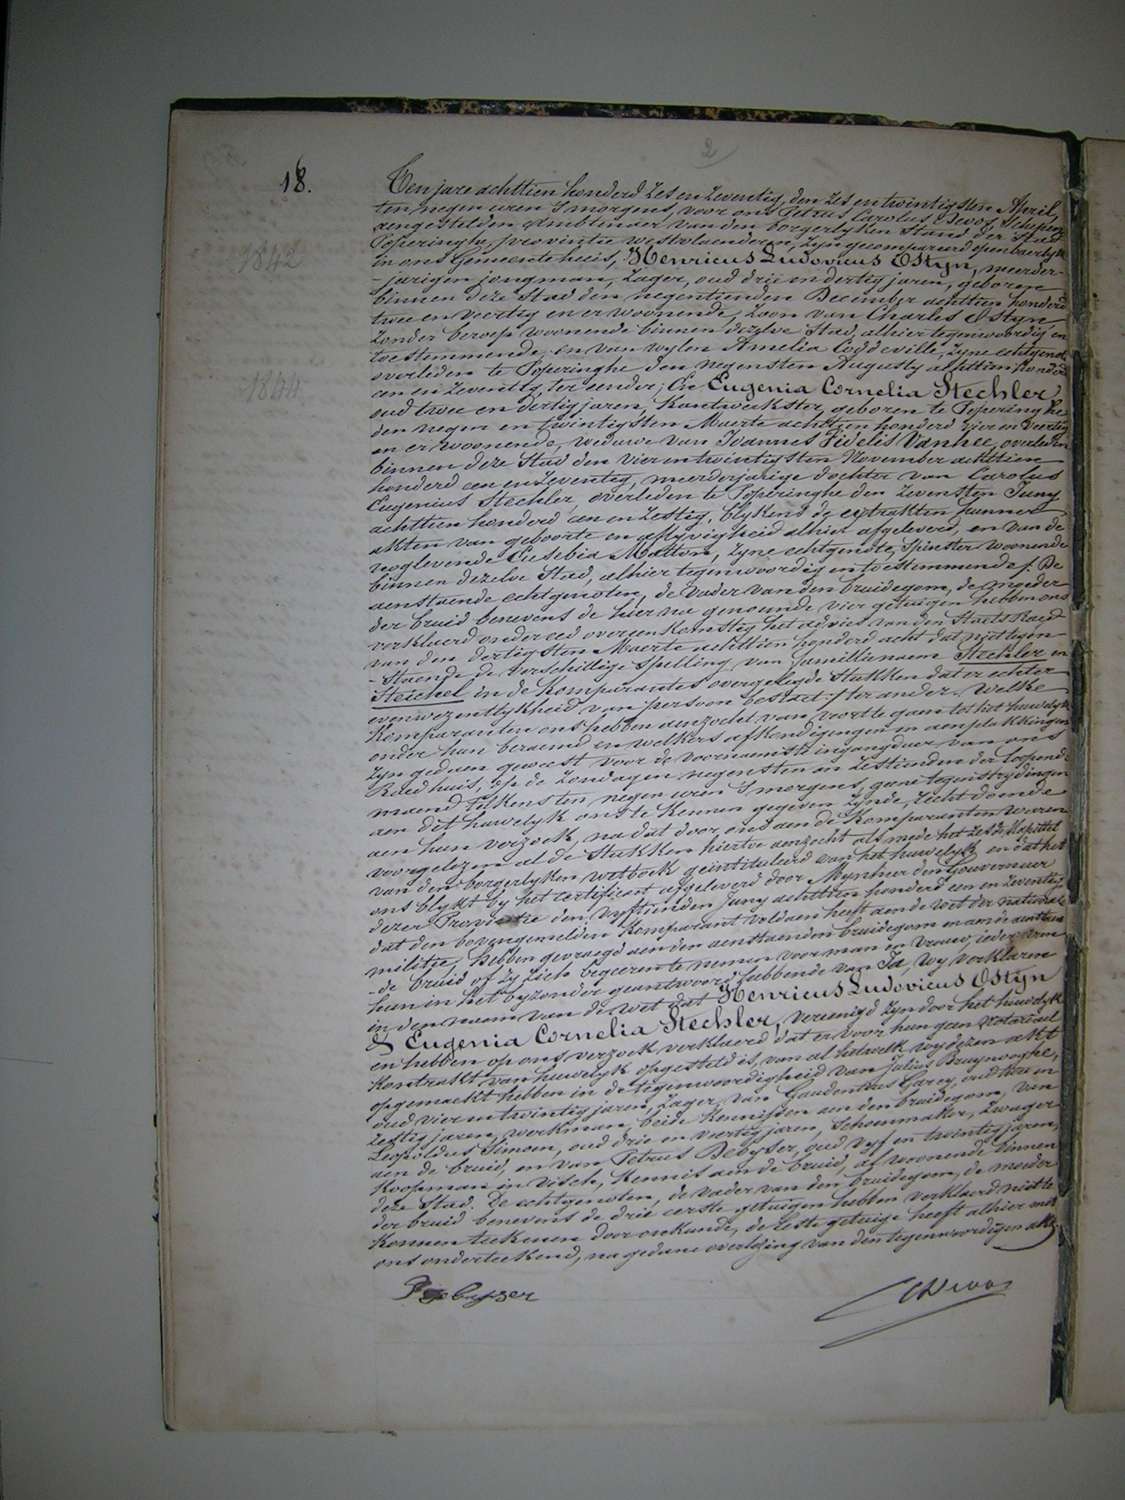 2
18.
1842
1844
Ten jare achttien honderd zes en zeventig, den zes en twintigsten April,
ten negen uren 's morgens, voor ons Petrus Carolus Devos, Schepen
aengestelden Ambtenaer van den borgerlyken Stand der Stad
Poperinghe, provintie westvlaenderen, zyn gecompareerd openbaerlyk
in ons Gemeente huis, Henricus Ludovicus Ostyn, meerder-
jarigen jongman, zager, oud drie en dertig jaren, geboren
binnen deze Stad den negentienden December achttien honderd
twee en veertig en er woonende, zoon van Charles Ostyn
zonder beroep woonende binnen dezelve Stad, alhier tegenwoordig en
toestemmende, en van wylen Amelia Coddeville, zyne echtgenote
overleden te Poperinghe den negensten Augusty achttien honderd
een en zeventig, ter eender; En Eugenia Cornelia Stechler,
oud twee en dertig jaren, kantwerkster, geboren te Poperinghe
den negen en twintigsten Maerte achttien honderd vier en veertig
en er woonende, weduwe van Joannes Fidelis Vanhee, overleden
binnen deze Stad den vier en twintigsten November achttien
honderd een en zeventig, meerderjarige dochter van Carolus
Eugenius Stechler, overleden te Poperinghe den zevensten Juny
achttien honderd een en zestig, blykens de extrakten hunner
akten van geboorte en aflyvigheid alhier afgeleverd, en van de
noglevende Eusebia Matton, zyne echtgenote, spinster woonende
binnen dezelve Stad, alhier tegenwoordig en toestemmende. De
aenstaende echtgenoten, de vader van den bruidegom, de moeder
der bruid benevens de hier na genoemde vier getuigen hebben ons
verklaerd onder eed overeenkomstig het advies van den Staets Raed
van den dertigsten Maerte achttien honderd acht dat niettegen-
-staende de verschillige spelling van familienaem Stechler en
Steichel in de komparantes overgelegde stukken dat er echter
evenwezentlykheid van persoon bestaet; ter ander. Welke
komparanten ons hebben aenzocht van voort te gaen tot het huwelyk
onder hun beraemd en welkers afkondigingen en aenplakkingen
zyn gedaen geweest voor de voornaemste ingangdeur van ons
Raedhuis, op de zondagen negensten en zestienden der loopende
maend telkens ten negen uren 's morgens, geene tegenstrydingen
aen dit huwelyk ons te kennen gegeven zynde, recht doende
aen hun verzoek, na dat door ons aen de komparanten waren
voorgelezen al de stukken hiertoe aenzocht als mede het zesde kapittel
van den borgerlyken wetboek geintituleerd van het huwelyk en dat het
ons blykt by het certificaet afgeleverd door Mynheer den Gouverneur
dezer Provintie den vyftienden Juny achttien honderd een en zeventig
dat den bovengemelden komparant voldaen heeft aen de wet der nationale
militie, hebben gevraegd aen den aenstaenden bruidegom en aen de aenstaen-
-de bruid of zy zich begeeren te nemen voor man en vrouw, ieder van
hun in het byzonder geantwoord hebbende van Ja, wy verklaren
in den naem van de wet dat Henricus Ludovicus Ostyn
& Eugenia Cornelia Stechler, vereenigd zyn door het huwelyk
en hebben op ons verzoek verklaerd dat er voor hun geen Notariael
kontrakt van huwelyk opgesteld is, van al hetwelk wy dezen akt
opgemaekt hebben in de tegenwoordigheid van Julius Bruynooghe,
oud vier en twintig jaren, zager, van Gaudentius Garey, oud twee en
zestig jaren, werkman, beide kennissen aen den bruidegom, van
Leopoldus Simoen, oud drie en veertig jaren, schoenmaker, zwager
aen de bruid, en van Petrus Debyser, oud vyf en twintig jaren,
koopman in visch, kennis aen de bruid, al woonende binnen
deze Stad. De echtgenoten, de vader van den bruidegom, de moeder
der bruid benevens de drie eerste getuigen hebben verklaerd niet te
konnen teekenen door onkunde, de leste getuige heeft alhier met
ons onderteekend, na gedane overlezing van den tegenwoordigen akt.
P Debyser
CDevos